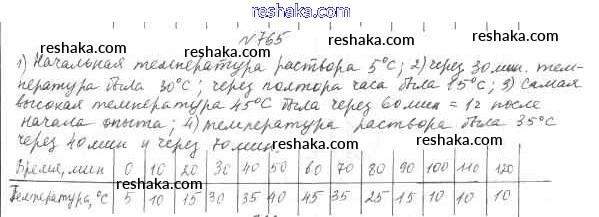 www.reshaka.com
№765
1) Начальная температура раствора 5°С; 2) через 30 мин. тем-
пература была 30°С; через полтора часа была 15°С; 3) Самая
высокая температура 45°С была через 60 мин = 1г после
начала опыта; 4) температура раствора была 35°С
через 40 мин и через 70 мин.
Время, мин 0 10 20 30 40 50 60 70 80 90 100 110 120
Температура, °С 5 10 15 30 35 40 45 35 25 15 10 10 10
reshaka.com reshaka.com reshaka.com
reshaka.com reshaka.com reshaka.com
reshaka.com reshaka.com reshaka.com
reshaka.com reshaka.com reshaka.com